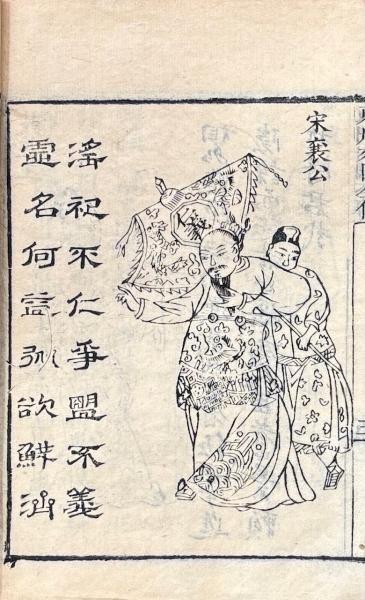 宋襄公
滛祀不仁爭盟不義
虛名何益从欲鮮濟